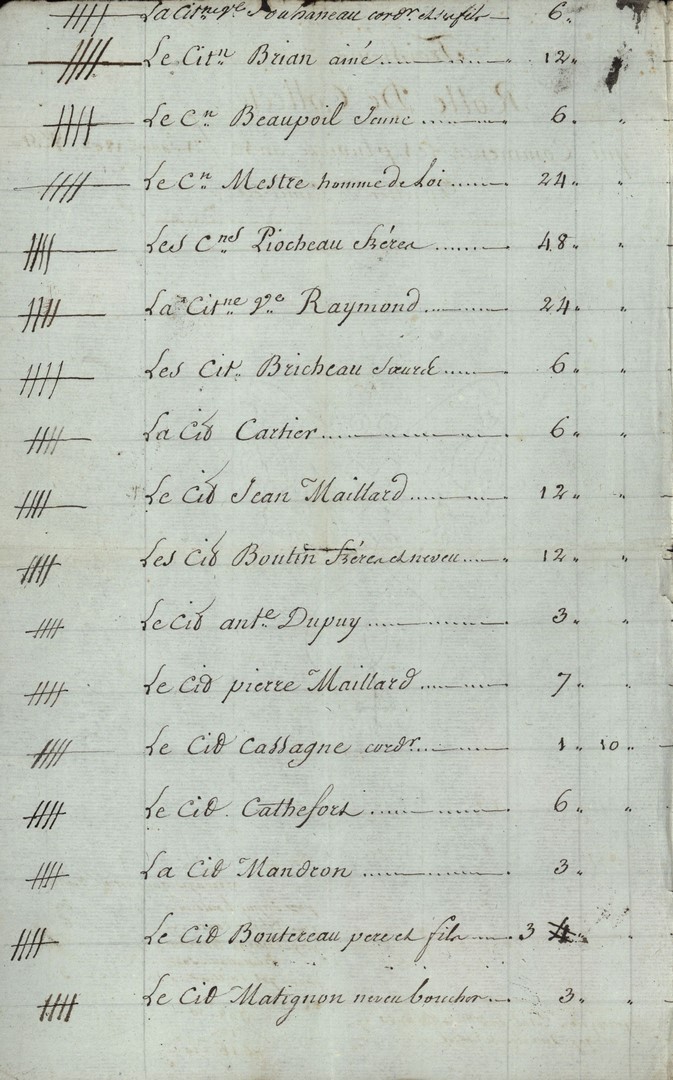 La Cit.ne v.ve Souhaneau cord.r et son fils 6 "
Le Cit.n Brian ainé 12 "
Le C.n Beaupoil Jeune 6 " "
Le C.n Mestre homme de Loi 24 " "
Les C.nes Piocheau fréres 48 " "
La Cit.ne v.e Raymond 24 " "
Les Cit. Bricheau soeurs 6 " "
La Cid Cartier 6 " "
Le Cid Jean Maillard 12 " "
Les Cid Boutin fréres et neveu 12 " "
Le Cid ant.e Dupuy 3 " "
Le Cid pierre Maillard 7 " "
Le Cid Cassagne cord.r 1 " 10 "
Le Cid. Cathefort 6 " "
La Cid Mandron 3 "
Le CidBoutereau pere et fils 3 " "
Le Cid Matignon neveu boucher 3 " "